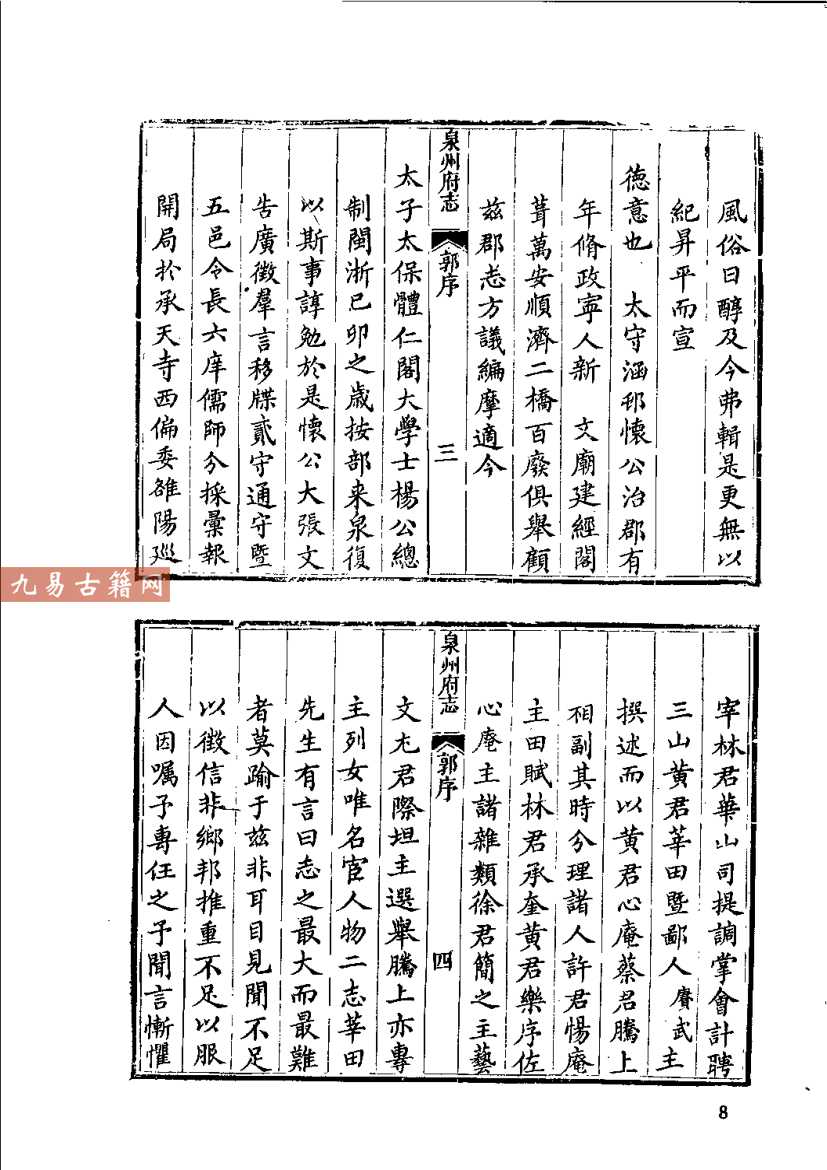 風俗日醇及今弗輯是更無以
紀昇平而宣
德意也 太守涵邨懷公治郡有
年脩政寧人新 文廟建經閣
葺萬安順濟二橋百廢俱舉顧
茲郡志方議編摩適今
泉州府志 郭序 三
太子太保體仁閣大學士楊公總
制閩浙已卯之歲按部来泉復
以斯事諄勉於是懷公大張文
告廣徵羣言移牒貳守通守暨
五邑令長六庠儒師分採彙報
開局於承天寺西偏委雒陽廵
九易古籍网
宰林君華山司提調掌會計聘
三山黄君莘田暨鄙人賡武主
撰述而以黄君心庵蔡君騰上
相副其時分理諸人許君惕庵
主田賦林君承奎黄君樂序佐
心庵主諸雜類徐君簡之主藝
泉州府志 郭序 四
文尤君際坦主選舉騰上亦專
主列女唯名宦人物二志莘田
先生有言曰志之最大而最難
者莫踰于兹非耳目見聞不足
以徵信非鄉邦推重不足以服
人因嘱予專任之予聞言慚懼
8